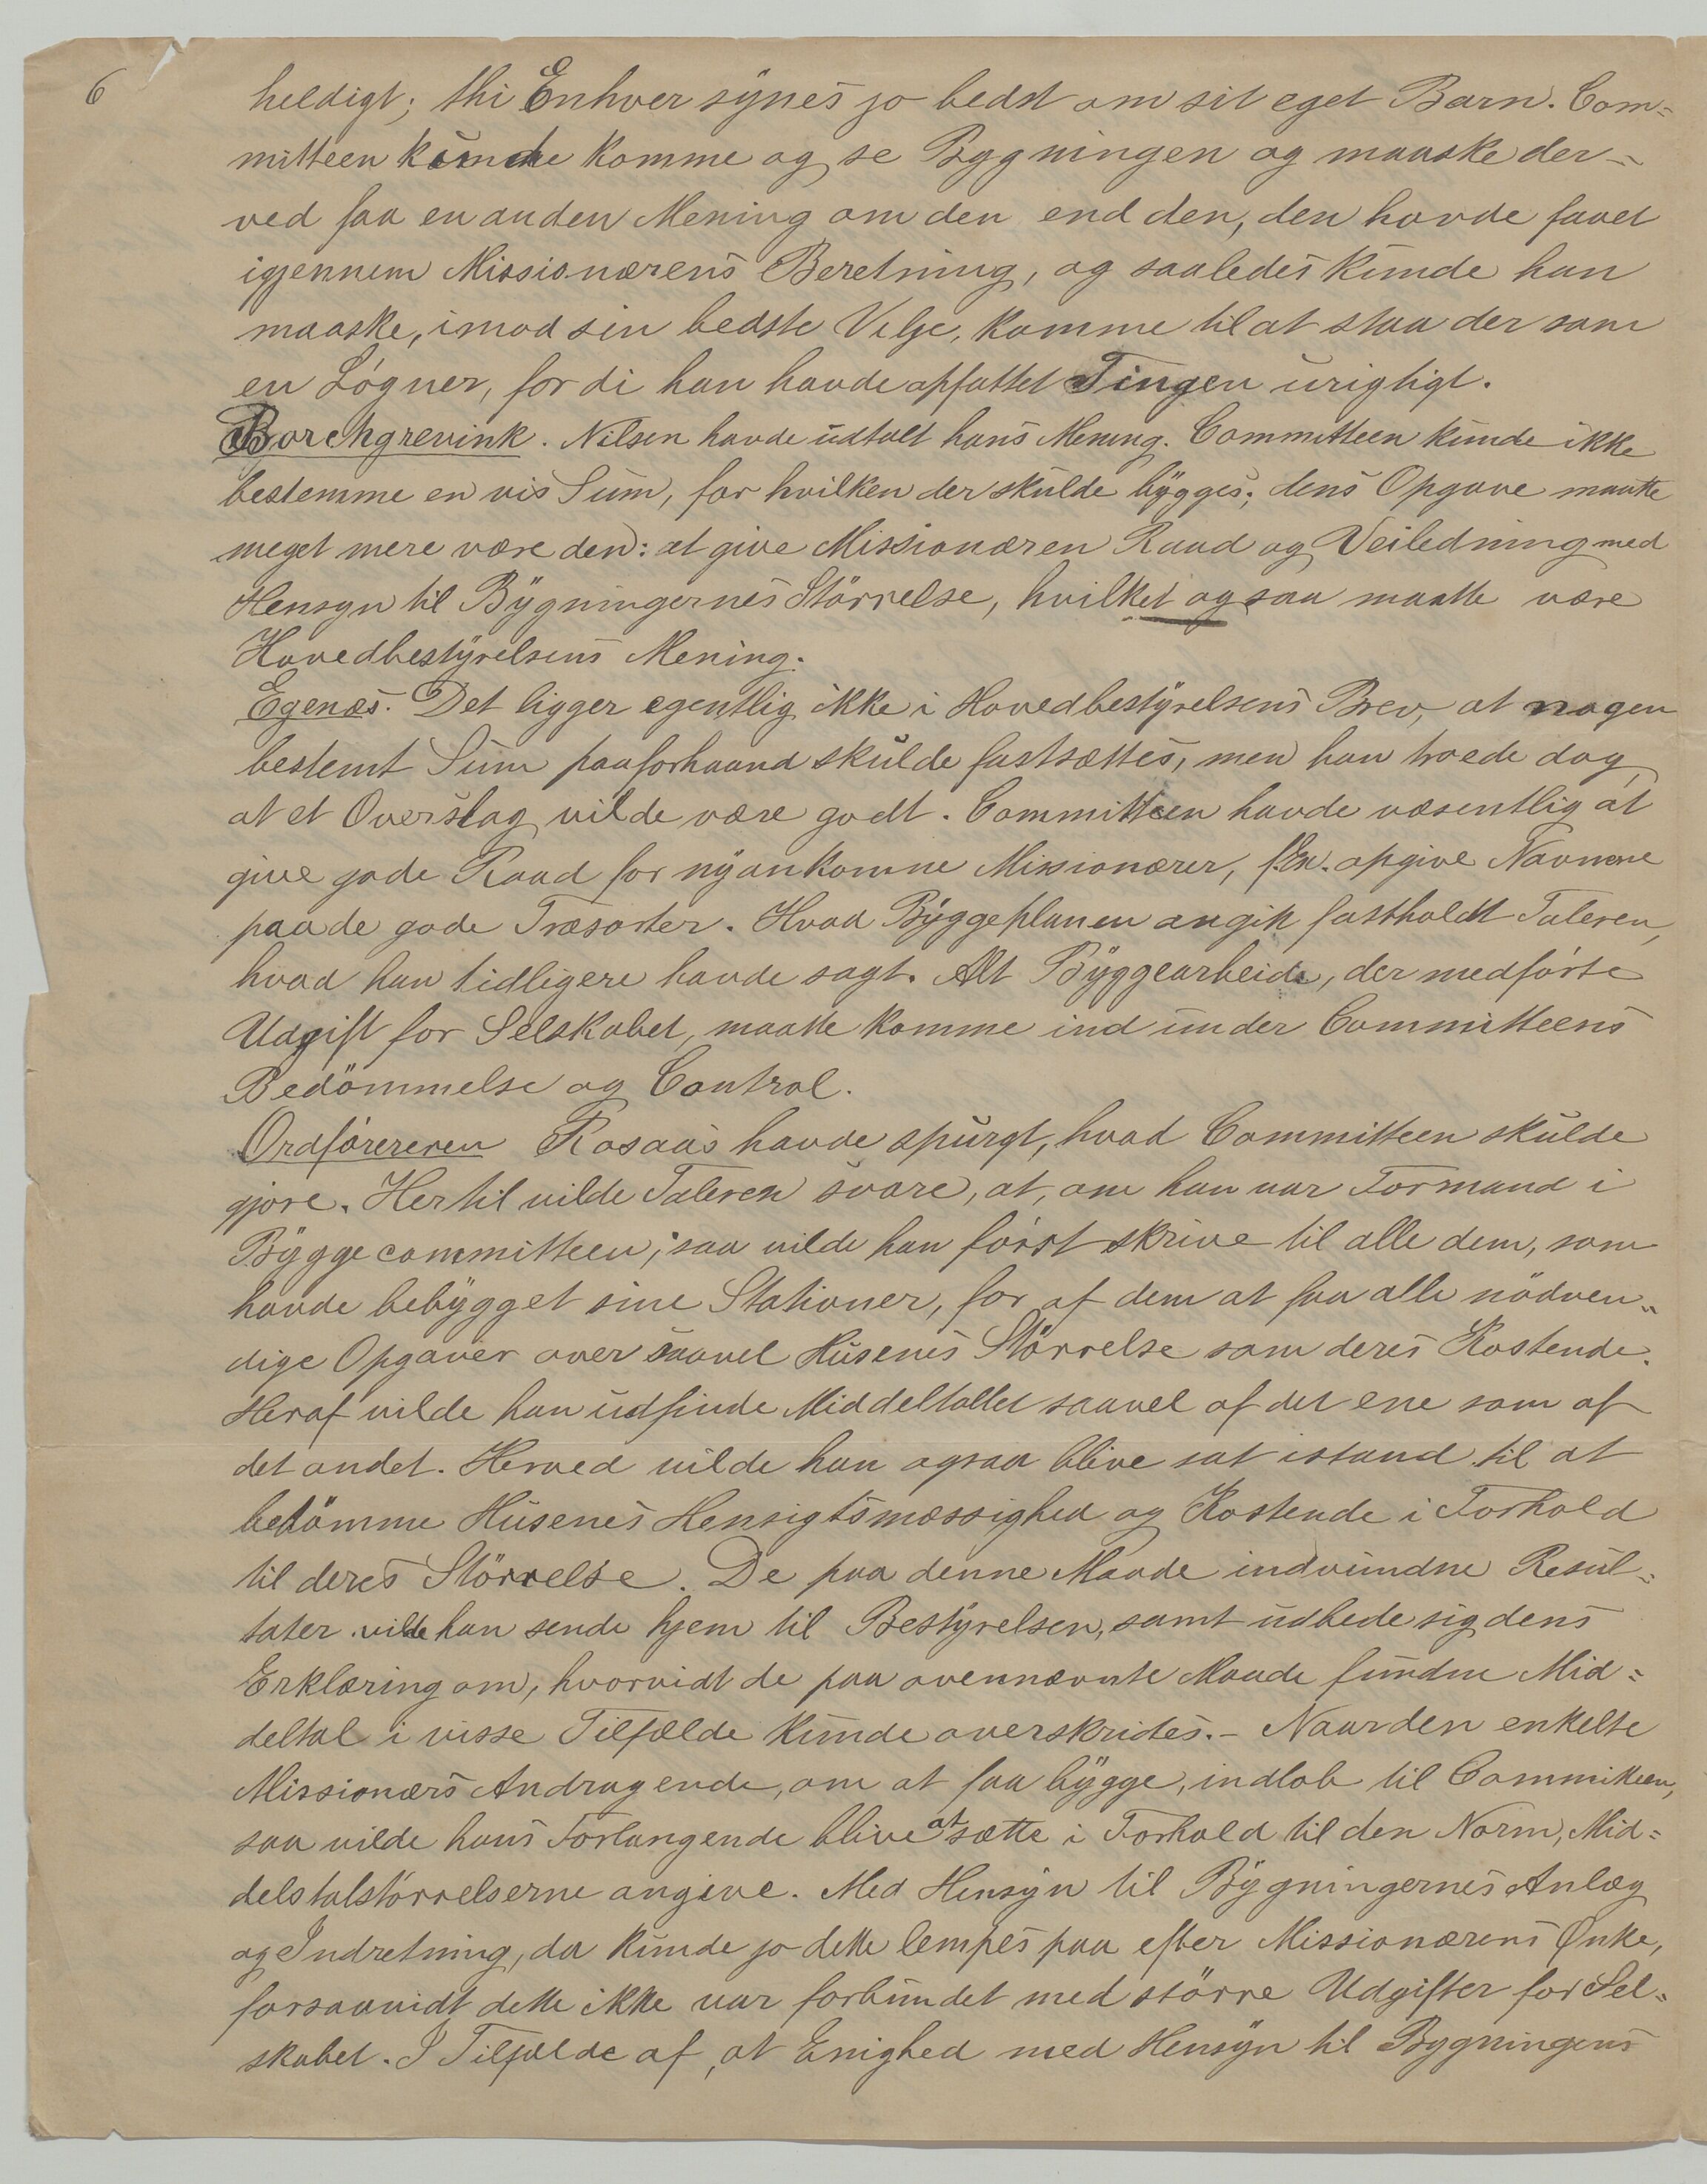 6
heldigt; thi Enhver synes jo bedst om sit eget Barn. Com=
mitteen kunde komme og se Bygningen og maaske der=
ved faa en anden Mening om den end den, den havde faaet
igjennem Missionærens Beretning, og saaledes kunde han
maaske, imod sin bedste Vilje, komme til at staa der som
en Løgner, fordi han havde opfattet Tingen urigtigt.
Borchgrevink. Nilsen havde udtalt hans Mening. Committeen kunde ikke
bestemme en vis Sum, for hvilken der skulde bygges; dens Opgave maatte
meget mere være den: at give Missionæren Raad og Veiledning med
Hensyn til Bygningernes Störrelse, hvilket ogsaa maatte være
Hovedbestyrelsens Mening.
Egenæs. Det ligger egentlig ikke i Hovedbestyrelsens Brev, at nogen
bestemt Sum paaforhaand skulde fastsættes, men han troede dog,
at et Overslag vilde være godt. Committeen havde væsentlig at
give gode Raad for nyankomne Missionærer, f.Ex. opgive Navnene
paa de gode Træsorter. Hvad Byggeplanen angik fastholdt Taleren,
hvad han tidligere havde sagt. Alt Byggearbeide, der medførte
Udgift for Selskabet, maatte komme ind under Committeens
Bedömmelse og Control.
Ordføreren Rosaas havde spurgt, hvad Committeen skulde
gjøre. Hertil vilde Taleren svare, at, om han var Formand i
Byggecommitteen, saa vilde han først skrive til alle dem, som
havde bebygget sine Stationer, for af dem at faa alle nödven=
dige Opgaver over saavel Husenes Störrelse som deres Kostende.
Heraf vilde han udfinde Middeltallet saavel af det ene som af
det andet. Herved vilde han ogsaa blive sat istand til at
bedömme Husenes Hensigtsmæssighed og Kostende i Forhold
til deres Störrelse. De paa denne Maade indvundne Resul=
tater vilde han sende hjem til Bestyrelsen, samt udbede sig dens
Erklæring om, hvorvidt de paa ovennævnte Maade fundne Mid=
deltal i visse Tilfælde kunde overskrides.- Naar den enkelte
Missionærs Andragende, om at faa bygge, indløb til Committeen,
saa vilde hans Forlangende blive at sætte i Forhold til den Norm, Mid=
delstalstørrelserne angive. Med Hensyn til Bygningernes Anlæg
og Indretning, da kunde jo dette lempes paa efter Missionærens Ønke,
forsaavidt dette ikke var forbundet med större Udgifter for Sel=
skabet. I Tilfælde af, at Enighed med Hensyn til Bygningens